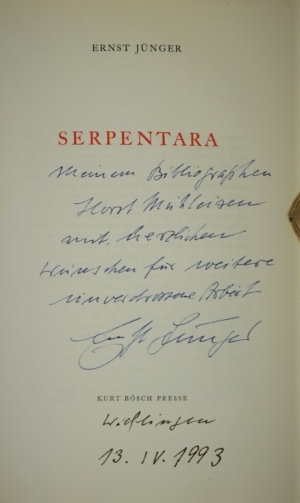 ERNST JÜNGER
SERPENTARA
Meinem Bibliographen
Horst Mühleisen
mit herzlichen
Wünschen für weitere
unverdrossene Arbeit
Ernst Jünger
KURT BÖSCH PRESSE
Wilflingen
13. IV. 1993